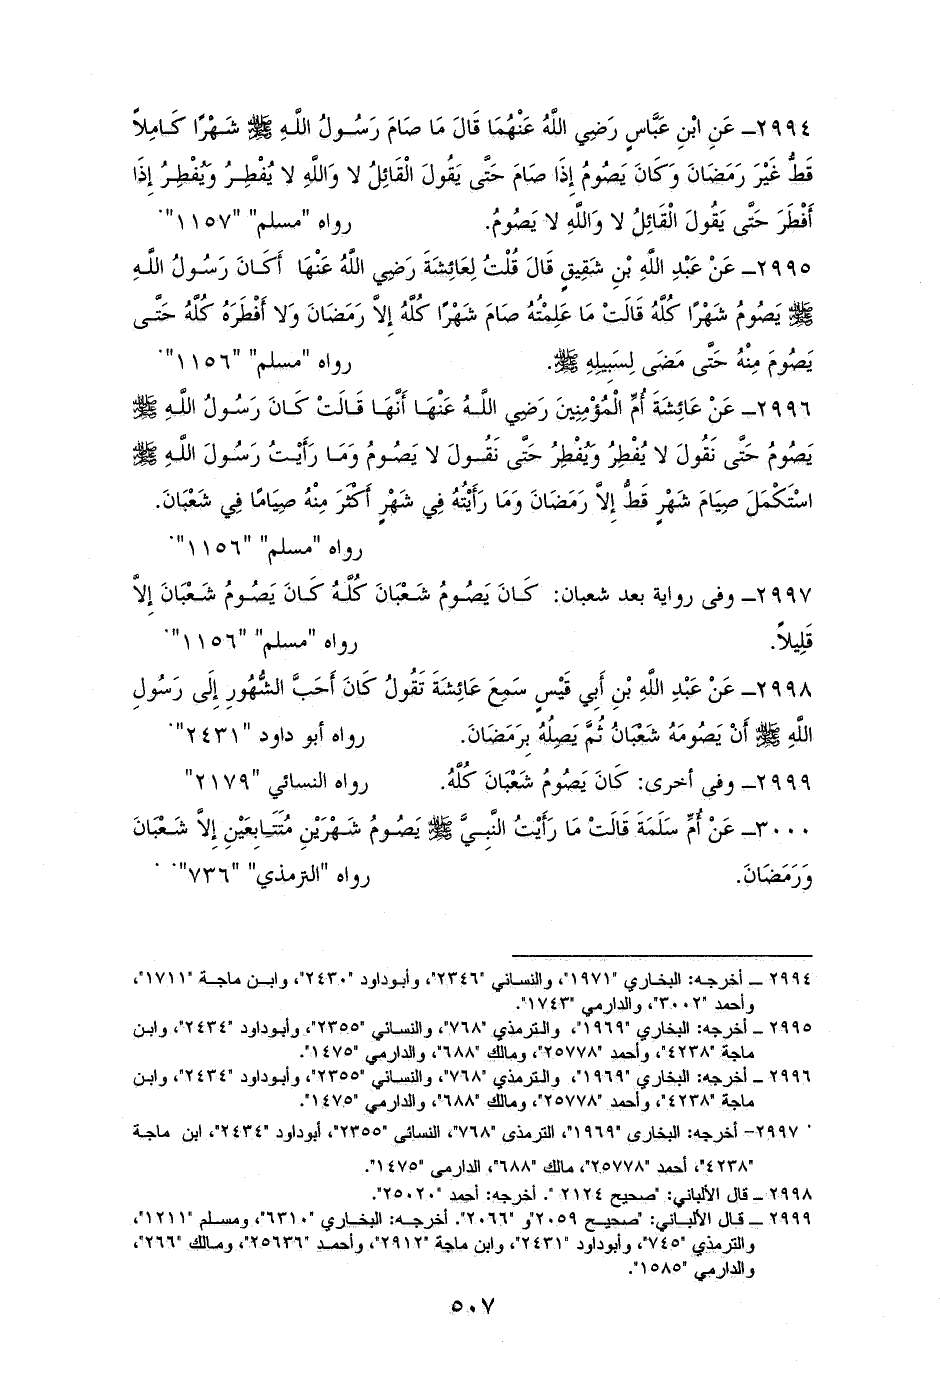 ٢٩٩٤ـ عَنِ ابْنِ عَبَّاسٍ رَضِي اللَّهُ عَنْهُمَا قَالَ مَا صَامَ رَسُولُ اللَّهِ ﷺ شَهْرًا كَامِلاً
قَطُّ غَيْرَ رَمَضَانَ وَكَانَ يَصُومُ إِذَا صَامَ حَتَّى يَقُولَ الْقَائِلُ لا وَاللَّهِ لا يُفْطِرُ وَيُفْطِرُ إِذَا
أَفْطَرَ حَتَّى يَقُولَ الْقَائِلُ لا وَاللَّهِ لا يَصُومُ. رواه "مسلم" "١١٥٧".
٢٩٩٥ـ عَنْ عَبْدِ اللَّهِ بْنِ شَقِيقٍ قَالَ قُلْتُ لِعَائِشَةَ رَضِي اللَّهُ عَنْهَا أَكَانَ رَسُولُ اللَّهِ
ﷺ يَصُومُ شَهْرًا كُلَّهُ قَالَتْ مَا عَلِمْتُهُ صَامَ شَهْرًا كُلَّهُ إِلاَّ رَمَضَانَ وَلا أَفْطَرَهُ كُلَّهُ حَتَّى
يَصُومَ مِنْهُ حَتَّى مَضَى لِسَبِيلِهِ ﷺ. رواه "مسلم" "١١٥٦".
٢٩٩٦ـ عَنْ عَائِشَةَ أُمِّ الْمُؤْمِنِينَ رَضِي اللَّهُ عَنْهَا أَنَّهَا قَالَتْ كَانَ رَسُولُ اللَّهِ ﷺ
يَصُومُ حَتَّى نَقُولَ لا يُفْطِرُ وَيُفْطِرُ حَتَّى نَقُولَ لا يَصُومُ وَمَا رَأَيْتُ رَسُولَ اللَّهِ ﷺ
اسْتَكْمَلَ صِيَامَ شَهْرٍ قَطُّ إِلاَّ رَمَضَانَ وَمَا رَأَيْتُهُ فِي شَهْرٍ أَكْثَرَ مِنْهُ صِيَامًا فِي شَعْبَانَ.
رواه "مسلم" "١١٥٦".
٢٩٩٧ـ وفى رواية بعد شعبان: كَانَ يَصُومُ شَعْبَانَ كُلَّهُ كَانَ يَصُومُ شَعْبَانَ إِلاَّ
قَلِيلاً. رواه "مسلم" "١١٥٦".
٢٩٩٨ـ عَنْ عَبْدِ اللَّهِ بْنِ أَبِي قَيْسٍ سَمِعَ عَائِشَةَ تَقُولُ كَانَ أَحَبَّ الشُّهُورِ إِلَى رَسُولِ
اللَّهِ ﷺ أَنْ يَصُومَهُ شَعْبَانُ ثُمَّ يَصِلُهُ بِرَمَضَانَ. رواه أبو داود "٢٤٣١".
٢٩٩٩ـ وفى أخرى: كَانَ يَصُومُ شَعْبَانَ كُلَّهُ. رواه النسائي "٢١٧٩"
٣٠٠٠ـ عَنْ أُمِّ سَلَمَةَ قَالَتْ مَا رَأَيْتُ النَّبِيَّ ﷺ يَصُومُ شَهْرَيْنِ مُتَتَابِعَيْنِ إِلاَّ شَعْبَانَ
وَرَمَضَانَ. رواه "الترمذي" "٧٣٦".
٢٩٩٤ ـ أخرجه: البخاري "١٩٧١"، والنسائي "٢٣٤٦"، وأبوداود "٢٤٣٠"، وابن ماجة "١٧١١"،
وأحمد "٣٠٠٢"، والدارمي "١٧٤٣".
٢٩٩٥ ـ أخرجه: البخاري "١٩٦٩"، والترمذي "٧٦٨"، والنسائي "٢٣٥٥"، وأبوداود "٢٤٣٤"، وابن
ماجة "٤٢٣٨"، وأحمد "٢٥٧٧٨"، ومالك "٦٨٨"، والدارمي "١٤٧٥".
٢٩٩٦ ـ أخرجه: البخاري "١٩٦٩"، والترمذي "٧٦٨"، والنسائي "٢٣٥٥"، وأبوداود "٢٤٣٤"، وابن
ماجة "٤٢٣٨"، وأحمد "٢٥٧٧٨"، ومالك "٦٨٨"، والدارمي "١٤٧٥".
٢٩٩٧- أخرجه: البخارى "١٩٦٩"، الترمذى "٧٦٨"، النسائى "٢٣٥٥"، أبوداود "٢٤٣٤"، ابن ماجة
"٤٢٣٨"، أحمد "٢٥٧٧٨"، مالك "٦٨٨"، الدارمى "١٤٧٥".
٢٩٩٨ ـ قال الألباني: "صحيح ٢١٢٤ ". أخرجه: أحمد "٢٥٠٢٠".
٢٩٩٩ ـ قال الألباني: "صحيح ٢٠٥٩"و "٢٠٦٦". أخرجه: البخاري "٦٣١٠"، ومسلم "١٢١١"،
والترمذي "٧٤٥"، وأبوداود "٢٤٣١"، وابن ماجة "٢٩١٢"، وأحمد "٢٥٦٣٦"، ومالك "٢٦٦"،
والدارمي "١٥٨٥".
٥٠٧